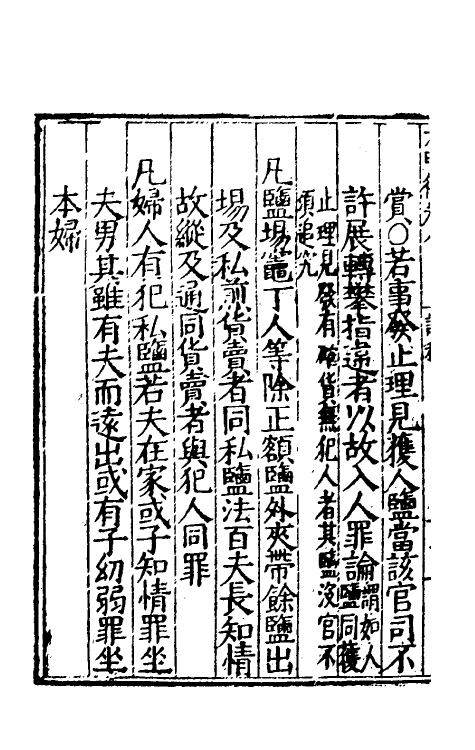 賞○若事發止理見獲人鹽當該官司不
許展轉攀指違者以故入人罪論謂如人鹽同獲
止理見發有確貨無犯人者其鹽沒官不
須追究
凡鹽場竈丁人等除正額鹽外夾帶餘鹽出
場及私煎貨賣者同私鹽法百夫長知情
故縱及通同貨賣者與犯人同罪
凡婦人有犯私鹽若夫在家或子知情罪坐
夫男其雖有夫而遠出或有子幼弱罪坐
本婦